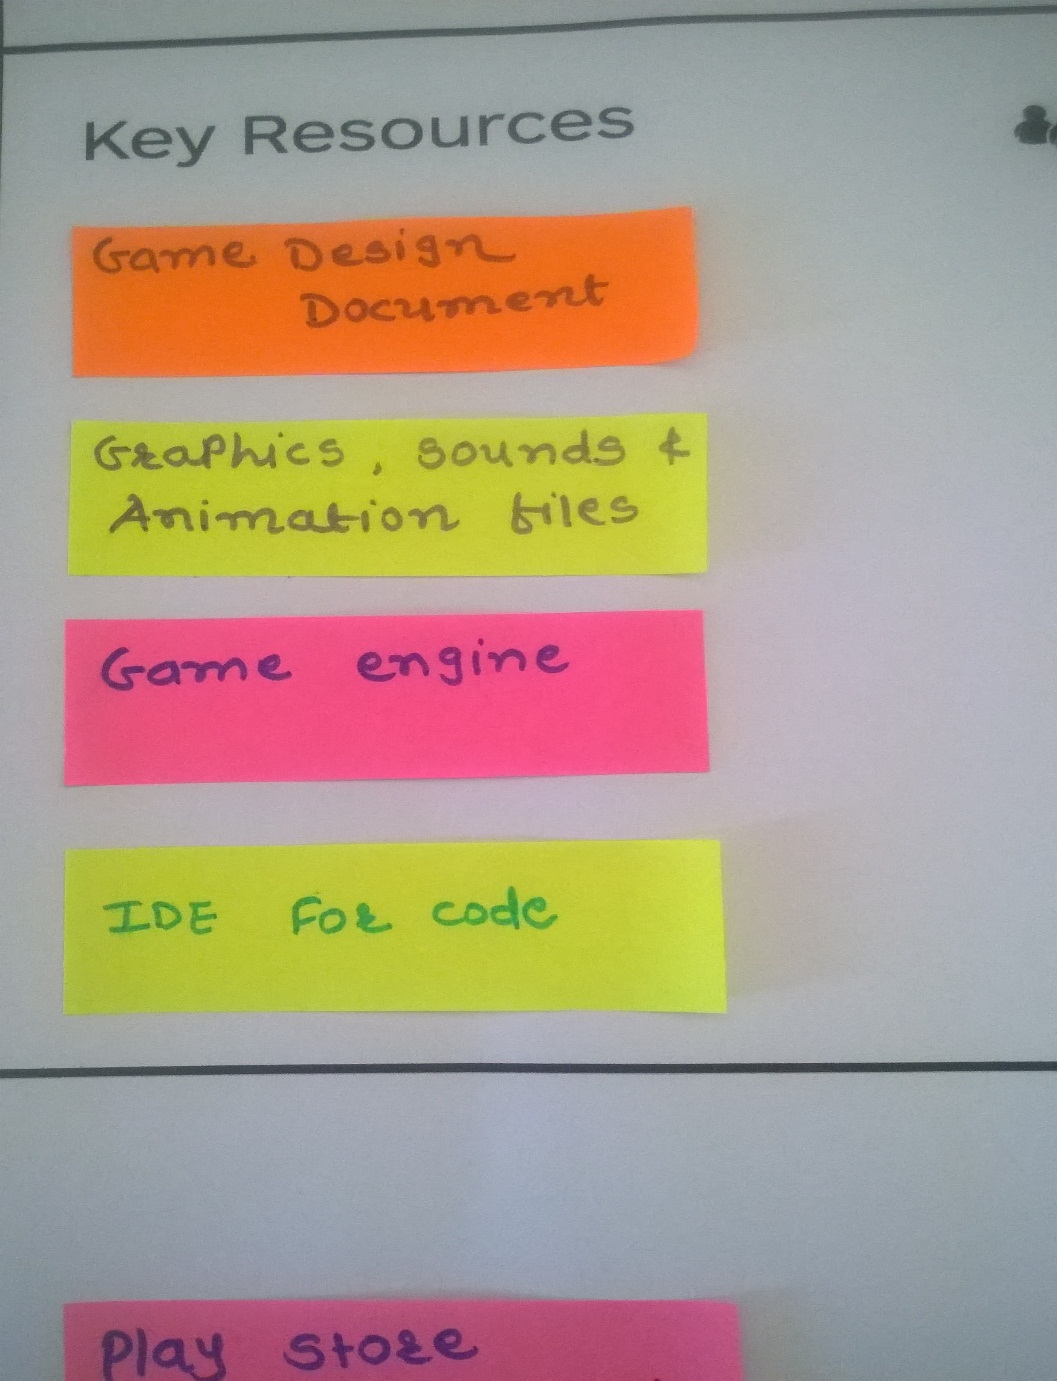 Key Resources
Game Design
Document
Graphics, sounds &
Animation files
Game engine
IDE For code
Play store